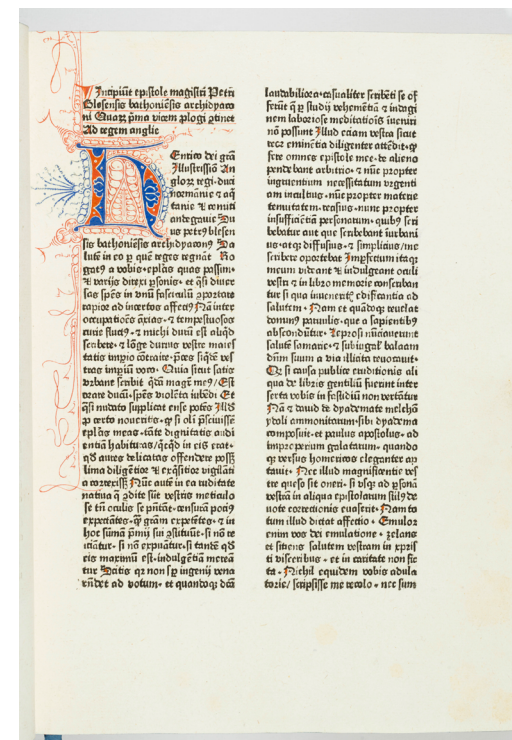 Incipiūt epistole magistri Petri
Blesensis bathoniēsis archidyaco
ni Quaꝝ p̄ma vicem plogi ꝯtinet
Ad regem anglie
HEnrico dei grā
illustrissīo An
gloꝝ regi·duci
normānie ⁊ aq̄
tanie ⁊ comiti
andegauie Su
us petrꝰ blesen
sis bathoniēsis archidyaconꝰ Sa
lutē in eo ꝑ quē reges regnāt Ro
gatꝰ a vobis·ep̄las quas passim·
⁊ varijs direxi ꝑsonis· et q̄si diuer
sas sp̄es in vnū fasciculū ꝯportare
rapior ad incertos affectꝰ Nā inter
occupatiōes āxias· ⁊ tempestuosos
curie fluctꝰ· ⁊ michi durū est aliqd̄
scribere· ⁊ lōge durius vestre maies
tatis impio
tras impiū voco· Quia sicut satis
vrbane scribit qd̄ā magr̄ meꝰ/Est
orare ducū·sp̄es violēta iubēdi Et
q̄si nudato supplicat ense potēs Illd̄
ꝓ certo noueritis· ꝙ si oli p̄sciuissē
ep̄las meas·tāte dignitatis audi
entiā habituras/qcqd̄ in eis erat·
qd̄ aures delicatas offendere possꝫ
lima diligētior ⁊ exq̄sitior vigilāti
a correxissꝫ Nūc autē in ea ruditate
natiua q̄ ꝯdite sūt vestris meticulo
se tn̄ oculis se p̄ntāt·censurā potiꝰ
expectātes· ꝙ grām expetētes· ⁊ in
hoc sūmā p̄mij sui ꝯstituūt·si nō re
iciātur· si nō expuātur·si tandē qd̄
eis maximū est·indulgētiā mereā
tur Satis em̄ non sꝑ ingenij vena
rn̄det ad votum· et quandoqꝫ dēā
laudabiliora·casualiter scribēti se of
ferūt q̄ ꝑ studij vehemētiā ⁊ indagi
nem laboriose meditatiōis īueniri
nō possunt Illud eciam vestra sicut
rex eminētia diligenter attēdit·ꝙ
fere omnes epistole mee·de alieno
pendebant arbitrio· ⁊ nūc propter
ingruentium necessitatum vrgenti
am incultius·nūc propter materie
temuitatem·ressius·nunc propter
insufficiētiā personarum·quibꝰ scri
bebatur aut que scribebant īurbani
us·atqꝫ diffusius· ⁊ simplicius/me
scribere oportebat Imꝑfectum itaqꝫ
meum videant ⁊ indulgeant oculi
vestri ⁊ in libro memorie conscriban
tur si qua inuenerīt edificantia ad
salutem· Nam et quādoqꝫ reuelat
dominꝰ paruulis·que a sapientibꝰ
absconditur· Leprosi nūciauerunt
salutē samarie· ⁊ subiugal' balaam
dn̄m suum a via illicita reuocauit·
Qꝫ si causa publice eruditionis ali
qua de libris gentiliū fuerint inter
serta vobis in fastidiū non vertātur
Nā ⁊ dauid de dyademate melchō
ydoli ammonitarum·sibi dyadema
composuit·et paulus apostolus·ad
improperium galatarum·quando
qꝫ versus homericos eleganter ap
tauit· Nec illud magnificentie ves
tre queso sit oneri· si vsqꝫ ad ꝑsonā
vestrā in aliqua epistolarum stilꝰ de
uote correctionis euaserit· Nam to
tum illud dictat affectio· Emulor
enim vos dei emulatione· zelans
et sitiens salutem vestram in xp̄ris
ti visceribus· et in caritate non fic
ta· Nichil equidem vobis adula
torie/scripsisse me recolo· nec sum